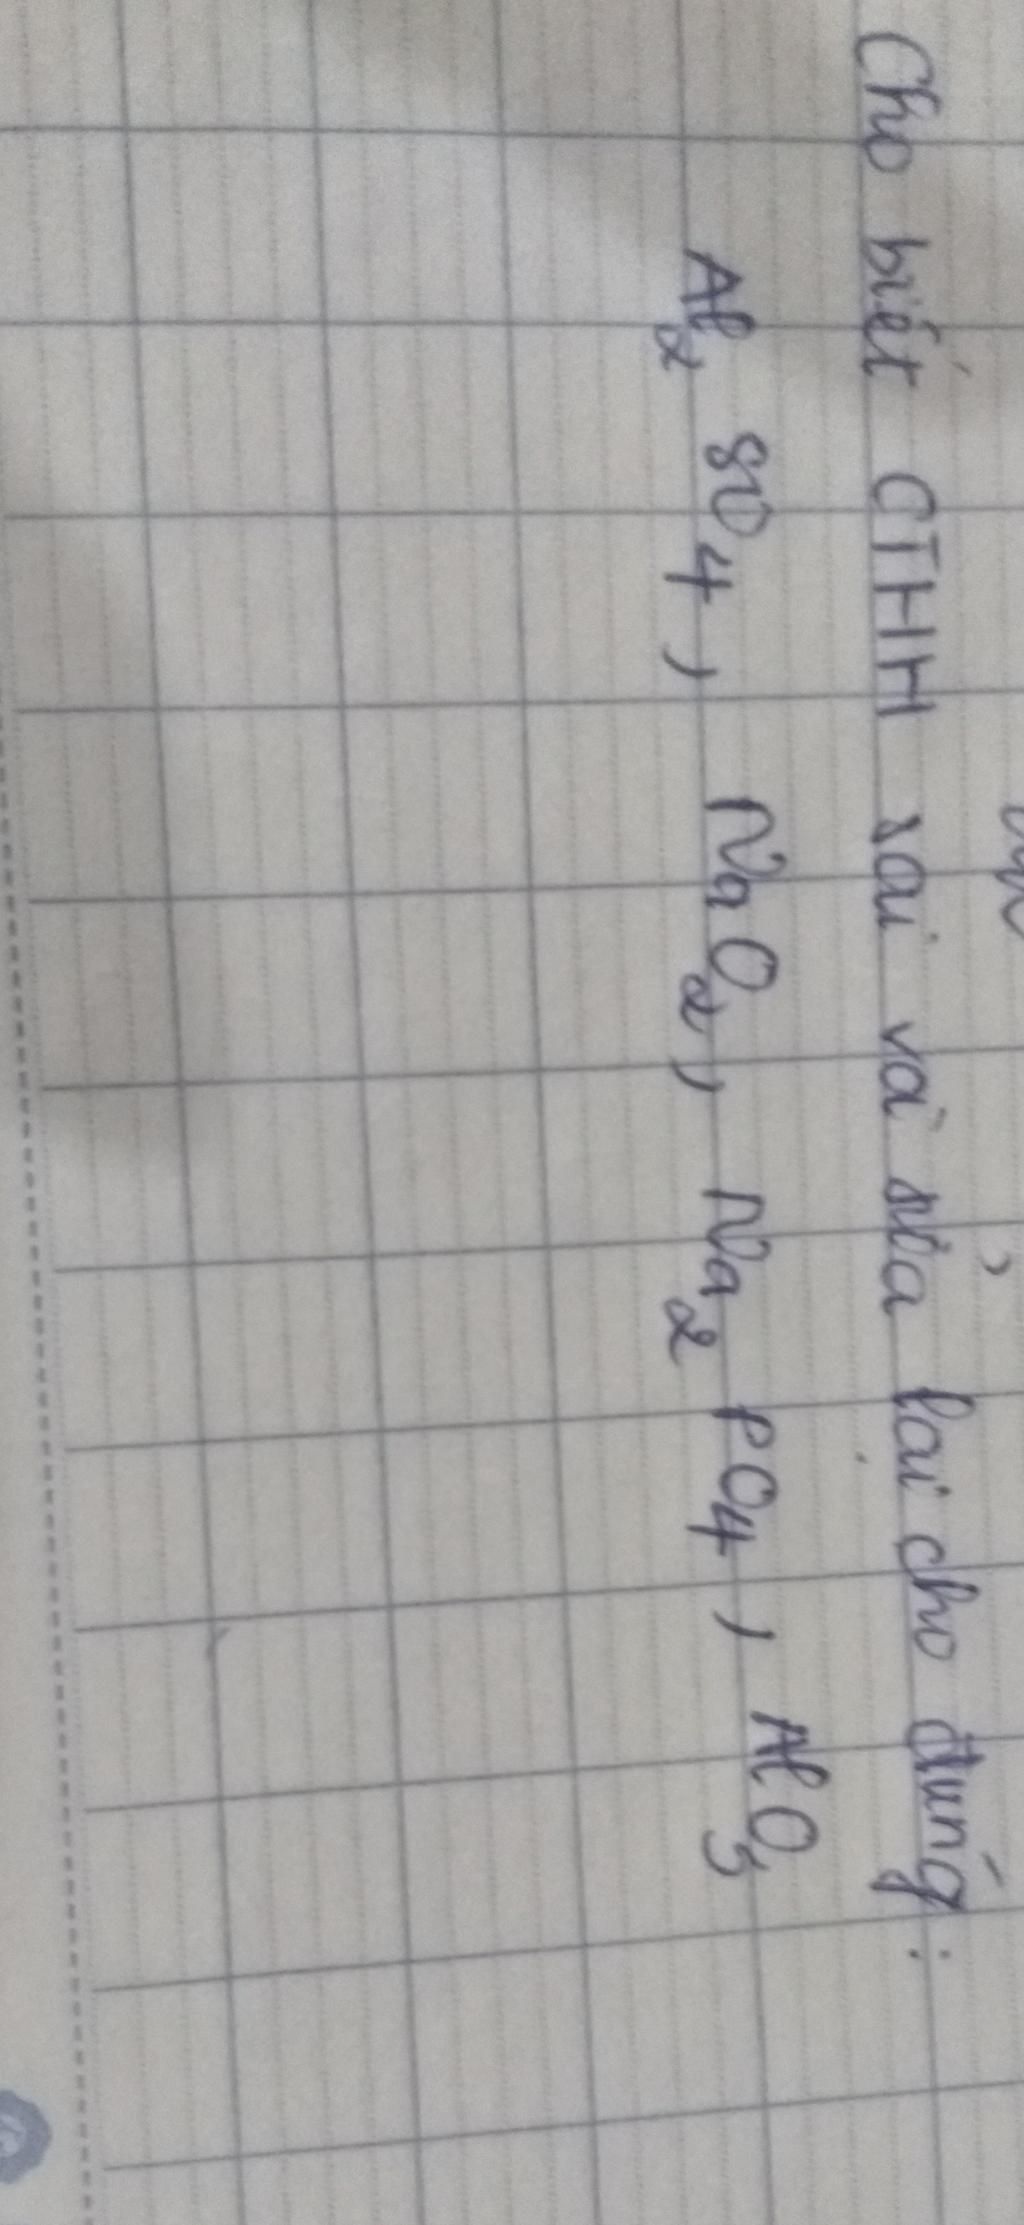 Cho biết CTHH sai và sửa lại cho đúng:
Al₂ SO₄, NaO₂, Na₂ PO₄, AlO₃